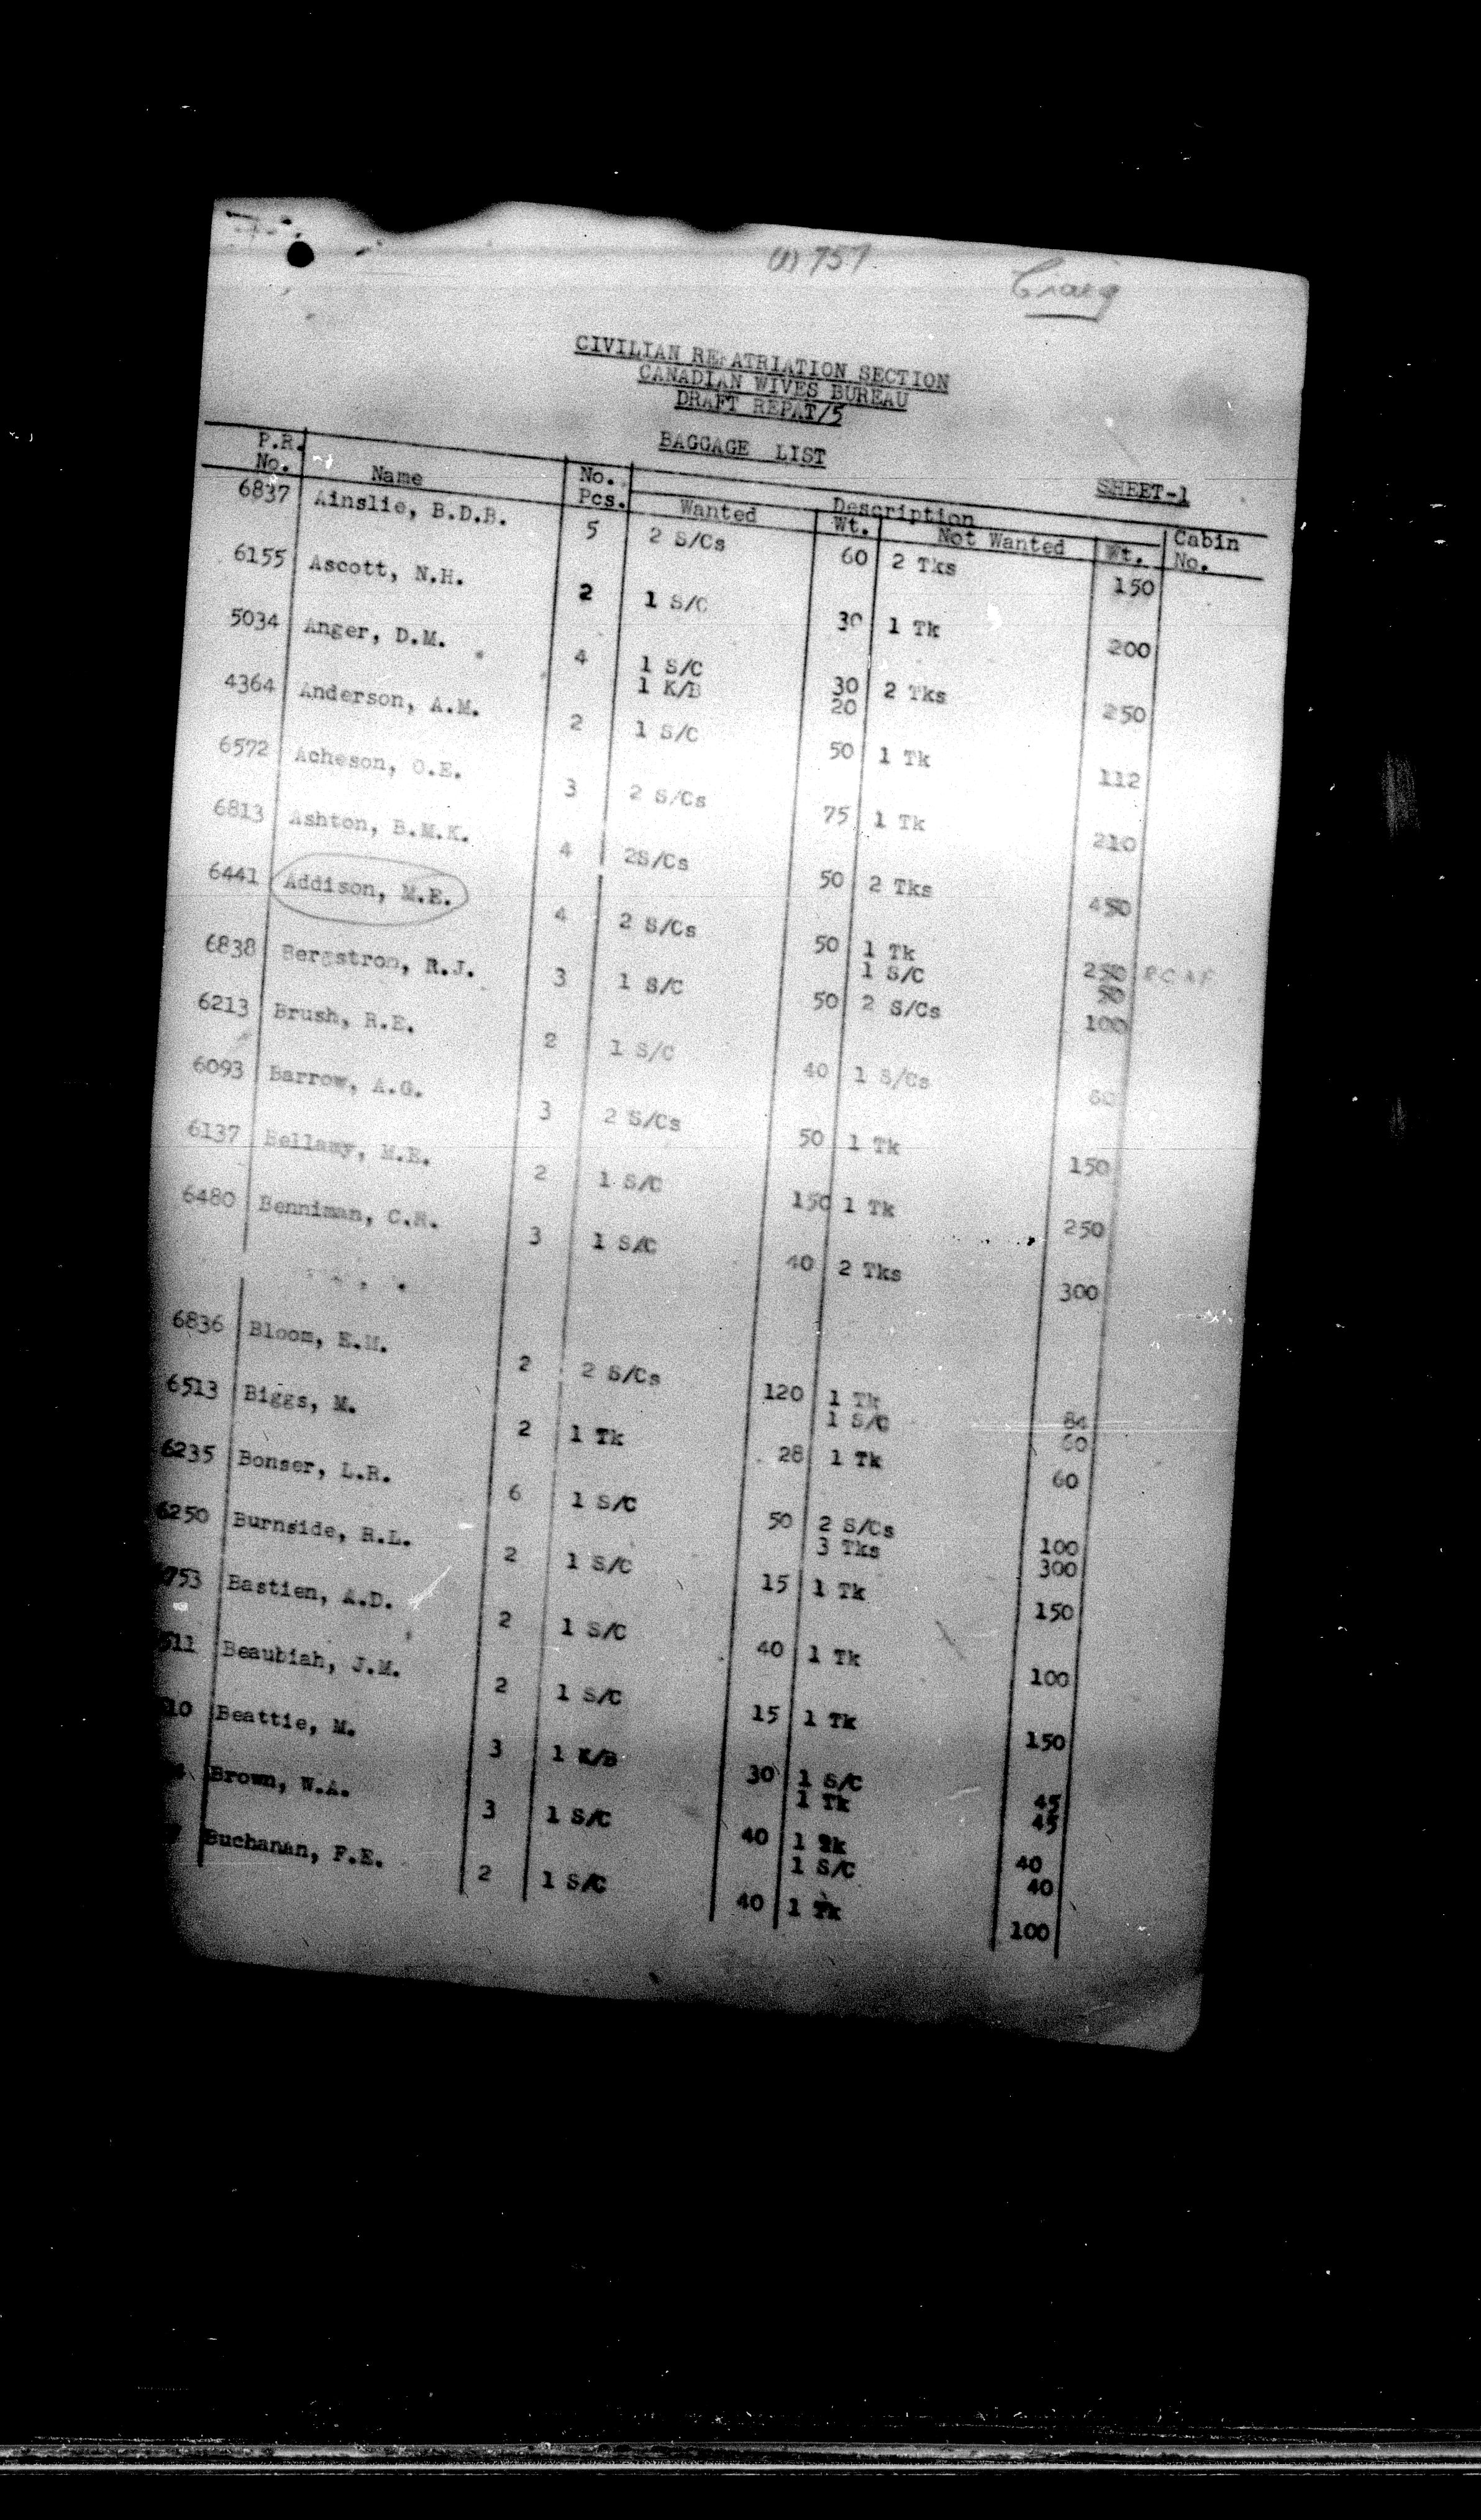 (1) 757
Craig
CIVILIAN REPATRIATION SECTION
CANADIAN WIVES BUREAU
DRAFT REPAT/5
BAGGAGE LIST
SHEET-1
P.R. No. Name No. Pcs. Description Wanted Wt. Not Wanted Wt. Cabin No.
6837 Ainslie, B.D.B. 5 2 S/Cs 60 2 Tks 150
6155 Ascott, N.H. 2 1 S/C 30 1 Tk 200
5034 Anger, D.M. 4 1 S/C 30 2 Tks 250
1 K/B 20
4364 Anderson, A.M. 2 1 S/C 50 1 Tk 112
6572 Acheson, O.E. 3 2 S/Cs 75 1 Tk 210
6813 Ashton, B.M.K. 4 2S/Cs 50 2 Tks 450
6441 Addison, M.E. 4 2 S/Cs 50 1 Tk 250 RCAF
1 S/C 50
6838 Bergstrom, R.J. 3 1 S/C 50 2 S/Cs 100
6213 Brush, R.E. 2 1 S/C 40 1 S/Cs
6093 Barrow, A.G. 3 2 S/Cs 50 1 Tk 150
6137 Bellamy, M.E. 2 1 S/C 150 1 Tk 250
6480 Benniman, C.H. 3 1 S/C 40 2 Tks 300
6836 Bloom, E.M. 2 2 S/Cs 120 1 Tk 84
1 S/C 60
6513 Biggs, M. 2 1 Tk 28 1 Tk 60
6235 Bonser, L.R. 6 1 S/C 50 2 S/Cs 100
3 Tks 300
6250 Burnside, R.L. 2 1 S/C 15 1 Tk 150
753 Bastien, A.D. 2 1 S/C 40 1 Tk 100
511 Beaubiah, J.M. 2 1 S/C 15 1 Tk 150
10 Beattie, M. 3 1 K/B 30 1 S/C 45
1 Tk 45
Brown, W.A. 3 1 S/C 40 1 Tk 40
1 S/C 40
Buchanan, F.E. 2 1 S/C 40 1 Tk 100